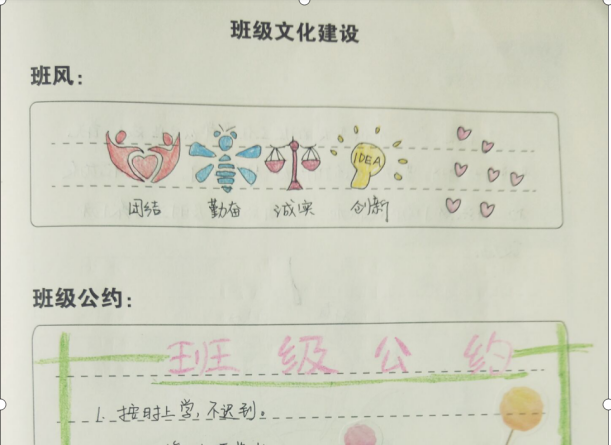 班级文化建设
班风:
IDEA
团结 勤奋 诚实 创新
班级公约:
班级公约
1. 按时上学,不迟到。